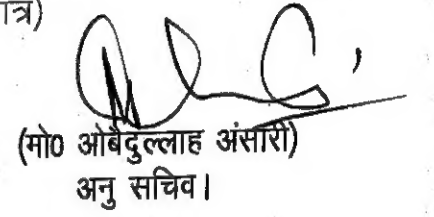 ात्र)
(मो0 ओबैदुल्लाह अंसारी)
अनु सचिव।